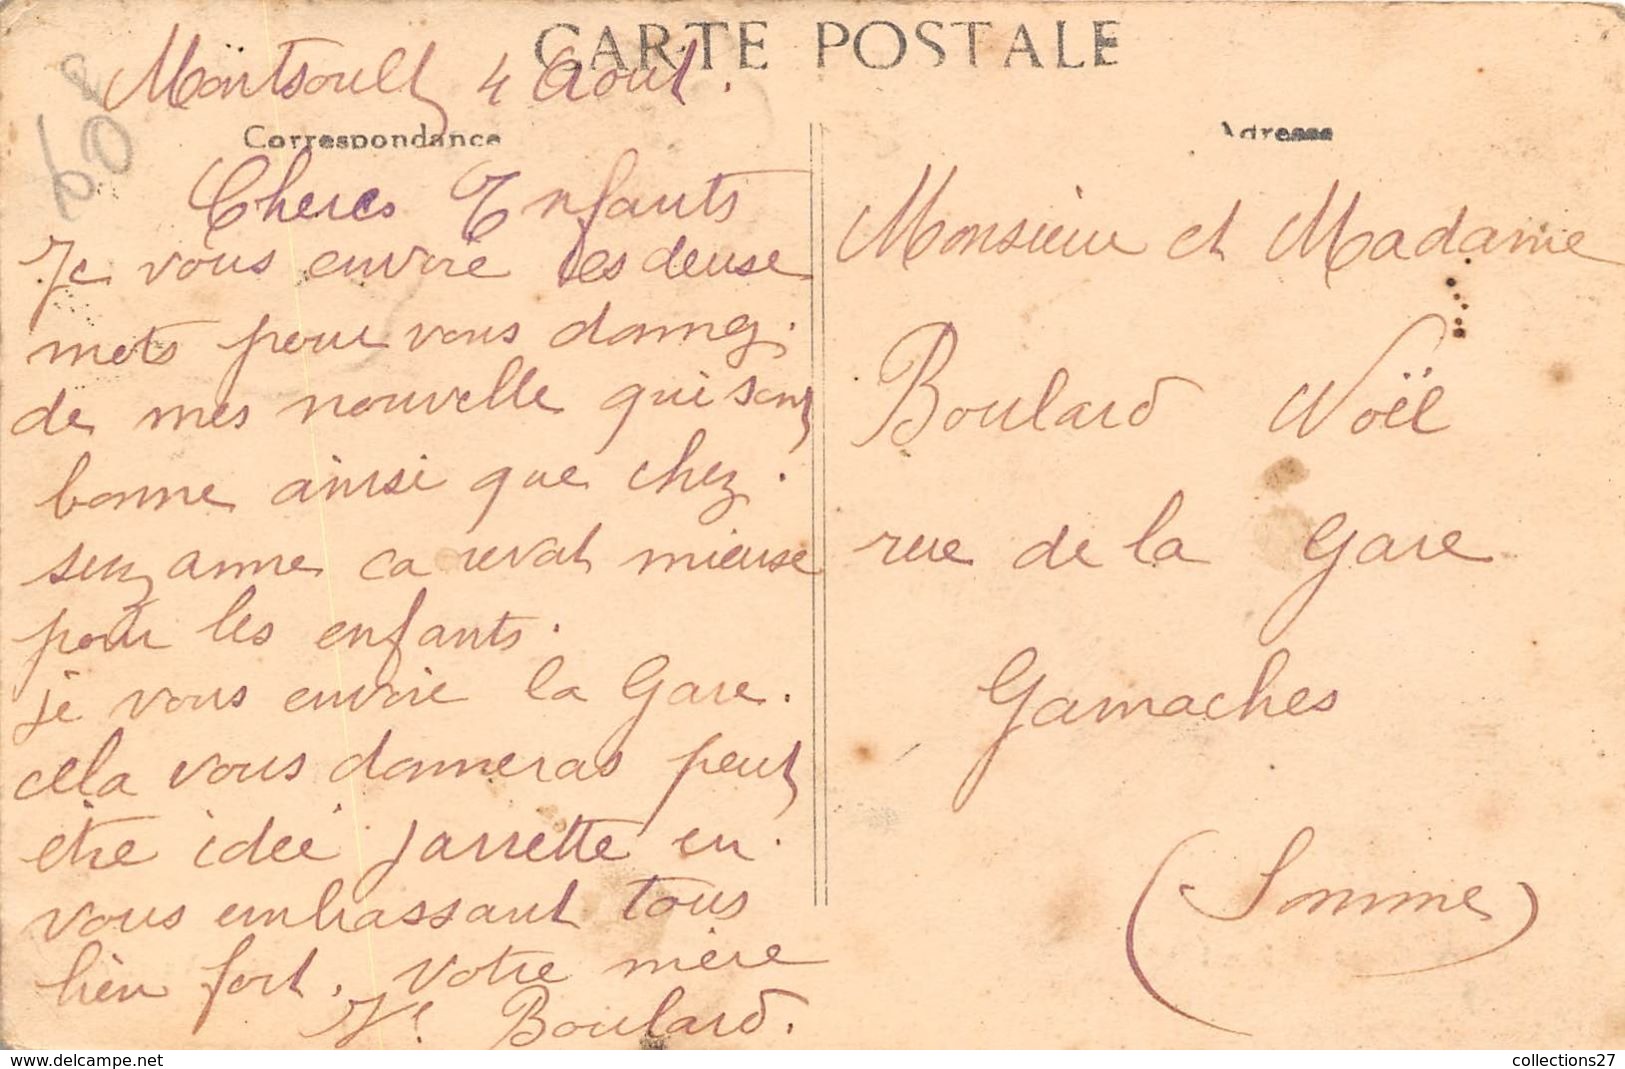 CARTE POSTALE
Montsoult 4 Aout.
Correspondance
Cheres Enfants
Je vous envoie ses deuse
mots pour vous donnez.
de mes nouvelle qui sont
bonne ainsi que chez.
suzanne ca revat mieuse
pour les enfants.
je vous envoie la Gare.
cela vous donneras peut
etre idée jarrette en.
vous embrassant tous
bien fort. Votre mère
Ve Boulard.
Adresse
Monsieur et Madame
Boulard Noël
rue de la Gare
Gamaches
(Somme)
60
https://www.delcampe.net
collections27